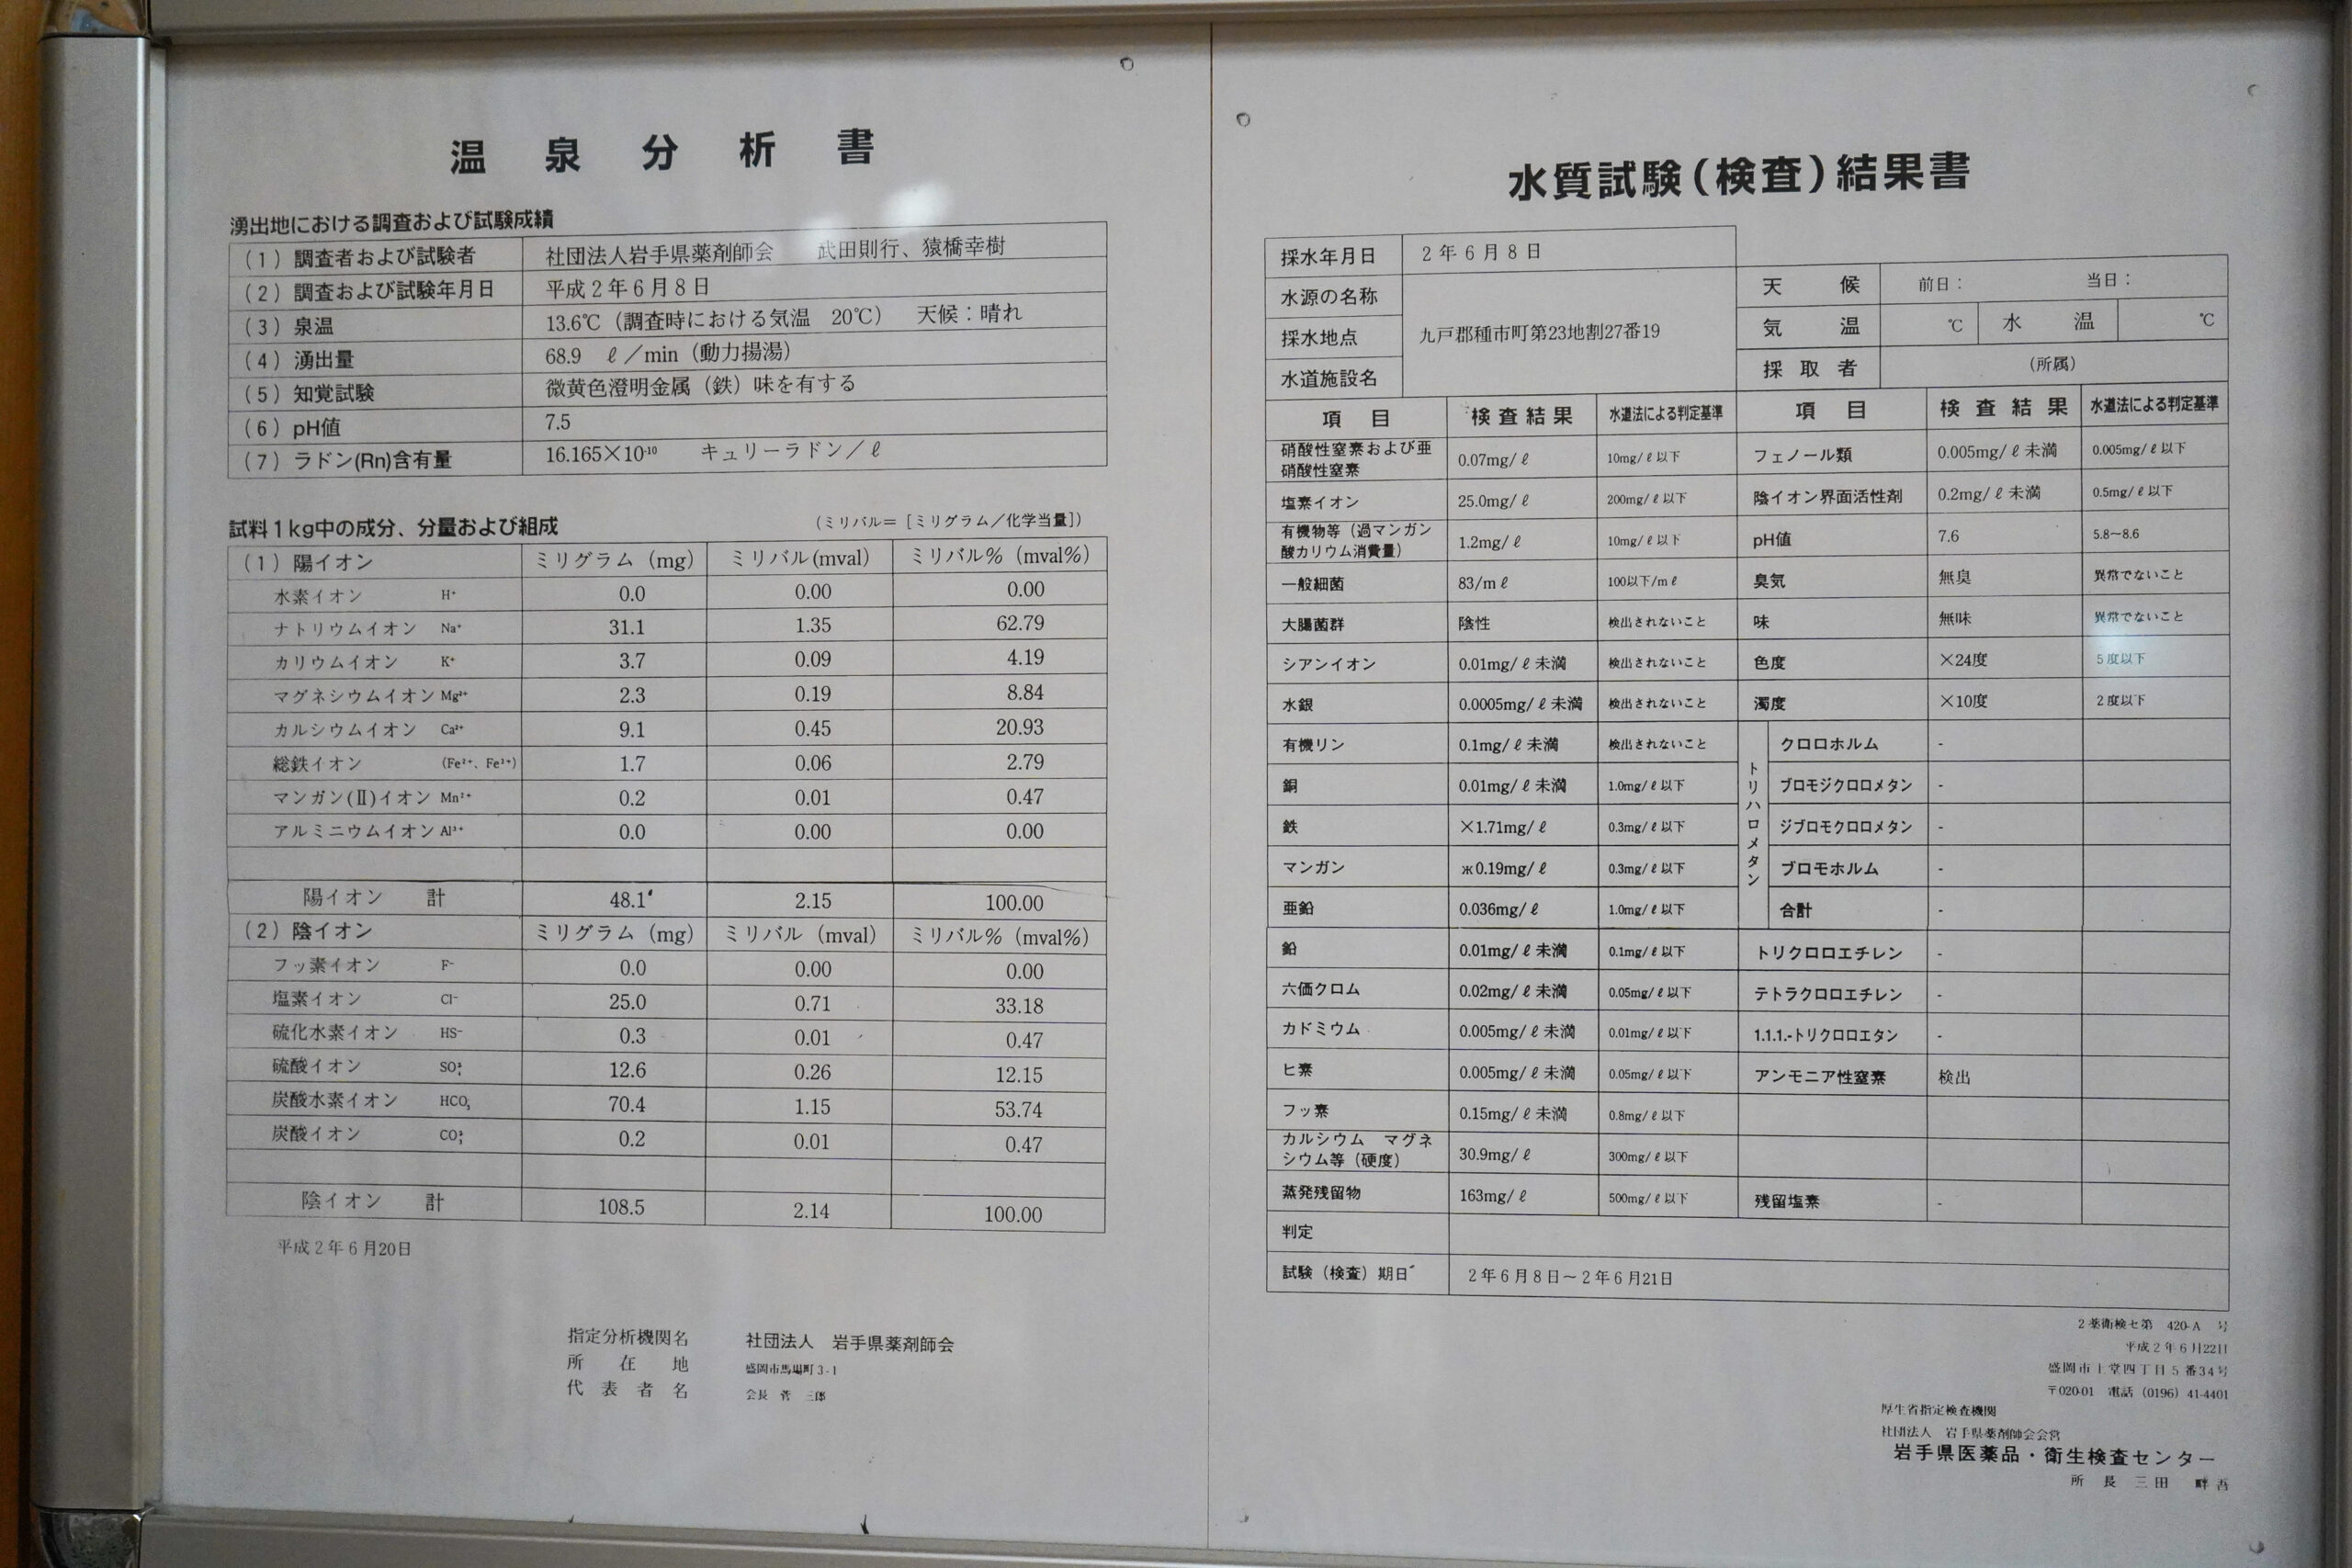 温泉分析書
湧出地における調査および試験成績
(1) 調査者および試験者 社団法人岩手県薬剤師会 武田則行、猿橋幸樹
(2) 調査および試験年月日 平成2年6月8日
(3) 泉温 13.6℃(調査時における気温 20℃) 天候:晴れ
(4) 湧出量 68.9 ℓ/min(動力揚湯)
(5) 知覚試験 微黄色澄明金属(鉄)味を有する
(6) pH値 7.5
(7) ラドン(Rn)含有量 16.165×10⁻¹⁰ キュリーラドン/ℓ
試料1kg中の成分、分量および組成 (ミリバル=[ミリグラム/化学当量])
(1) 陽イオン ミリグラム(mg) ミリバル(mval) ミリバル%(mval%)
水素イオン H⁺ 0.0 0.00 0.00
ナトリウムイオン Na⁺ 31.1 1.35 62.79
カリウムイオン K⁺ 3.7 0.09 4.19
マグネシウムイオン Mg²⁺ 2.3 0.19 8.84
カルシウムイオン Ca²⁺ 9.1 0.45 20.93
総鉄イオン (Fe²⁺、Fe³⁺) 1.7 0.06 2.79
マンガン(Ⅱ)イオン Mn²⁺ 0.2 0.01 0.47
アルミニウムイオン Al³⁺ 0.0 0.00 0.00
陽イオン 計 48.1 2.15 100.00
(2) 陰イオン ミリグラム(mg) ミリバル(mval) ミリバル%(mval%)
フッ素イオン F⁻ 0.0 0.00 0.00
塩素イオン Cl⁻ 25.0 0.71 33.18
硫化水素イオン HS⁻ 0.3 0.01 0.47
硫酸イオン SO₄²⁻ 12.6 0.26 12.15
炭酸水素イオン HCO₃⁻ 70.4 1.15 53.74
炭酸イオン CO₃²⁻ 0.2 0.01 0.47
陰イオン 計 108.5 2.14 100.00
平成2年6月20日
指定分析機関名 社団法人 岩手県薬剤師会
所在地 盛岡市馬場町3-1
代表者名 会長 菅 三郎
水質試験(検査)結果書
採水年月日 2年6月8日
水源の名称
採水地点 九戸郡種市町第23地割27番19
水道施設名
天候 前日: 当日:
気温 ℃ 水温 ℃
採取者 (所属)
項目 検査結果 水道法による判定基準 項目 検査結果 水道法による判定基準
硝酸性窒素および亜硝酸性窒素 0.07mg/ℓ 10mg/ℓ以下 フェノール類 0.005mg/ℓ未満 0.005mg/ℓ以下
塩素イオン 25.0mg/ℓ 200mg/ℓ以下 陰イオン界面活性剤 0.2mg/ℓ未満 0.5mg/ℓ以下
有機物等(過マンガン酸カリウム消費量) 1.2mg/ℓ 10mg/ℓ以下 pH値 7.6 5.8~8.6
一般細菌 83/mℓ 100以下/mℓ 臭気 無臭 異常でないこと
大腸菌群 陰性 検出されないこと 味 無味 異常でないこと
シアンイオン 0.01mg/ℓ未満 検出されないこと 色度 ×24度 5度以下
水銀 0.0005mg/ℓ未満 検出されないこと 濁度 ×10度 2度以下
有機リン 0.1mg/ℓ未満 検出されないこと トリハロメタン クロロホルム -
銅 0.01mg/ℓ未満 1.0mg/ℓ以下 ブロモジクロロメタン -
鉄 ×1.71mg/ℓ 0.3mg/ℓ以下 ジブロモクロロメタン -
マンガン ж0.19mg/ℓ 0.3mg/ℓ以下 ブロモホルム -
亜鉛 0.036mg/ℓ 1.0mg/ℓ以下 合計 -
鉛 0.01mg/ℓ未満 0.1mg/ℓ以下 トリクロロエチレン -
六価クロム 0.02mg/ℓ未満 0.05mg/ℓ以下 テトラクロロエチレン -
カドミウム 0.005mg/ℓ未満 0.01mg/ℓ以下 1.1.1.-トリクロロエタン -
ヒ素 0.005mg/ℓ未満 0.05mg/ℓ以下 アンモニア性窒素 検出
フッ素 0.15mg/ℓ未満 0.8mg/ℓ以下
カルシウム マグネシウム等(硬度) 30.9mg/ℓ 300mg/ℓ以下
蒸発残留物 163mg/ℓ 500mg/ℓ以下 残留塩素 -
判定
試験(検査)期日 2年6月8日~2年6月21日
2薬衛検セ第 420-A 号
平成2年6月22日
盛岡市上堂四丁目5番34号
〒020-01 電話(0196)41-4401
厚生省指定検査機関
社団法人 岩手県薬剤師会会営
岩手県医薬品・衛生検査センター
所長 三田